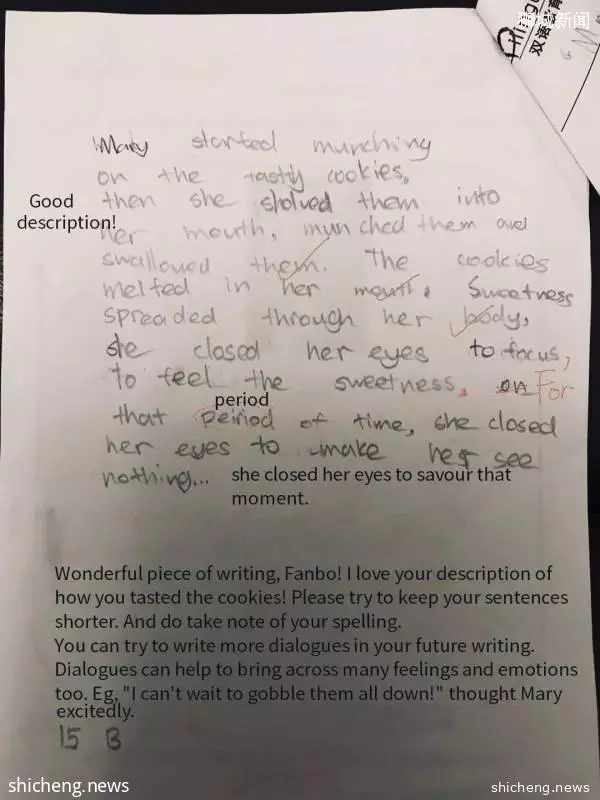 狮城新闻
双语教育
Mary started munching
on the tasty cookies,
Good
description!
then she sholved them into
her mouth, munched them and
swallowed them. The cookies
melted in her mouth. Sweetness
spreaded through her body,
she closed her eyes to focus,
to feel the sweetness, on For
period
that peiriod of time, she closed
her eyes to make her see
nothing...
she closed her eyes to savour that
moment.
Wonderful piece of writing, Fanbo! I love your description of
how you tasted the cookies! Please try to keep your sentences
shorter. And do take note of your spelling.
You can try to write more dialogues in your future writing.
Dialogues can help to bring across many feelings and emotions
too. Eg, "I can't wait to gobble them all down!" thought Mary
excitedly.
15 B
shicheng.news
shicheng.news